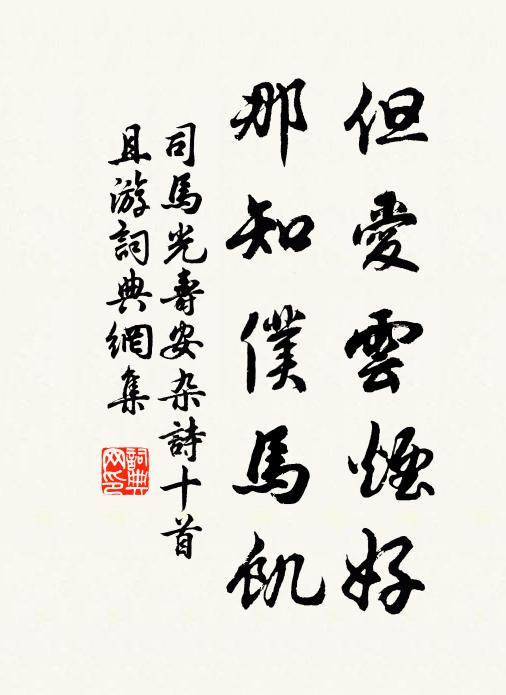 但愛雲煙好
那知僕馬飢
司馬光壽安杂詩十首
且游詞典網集
詞典网印